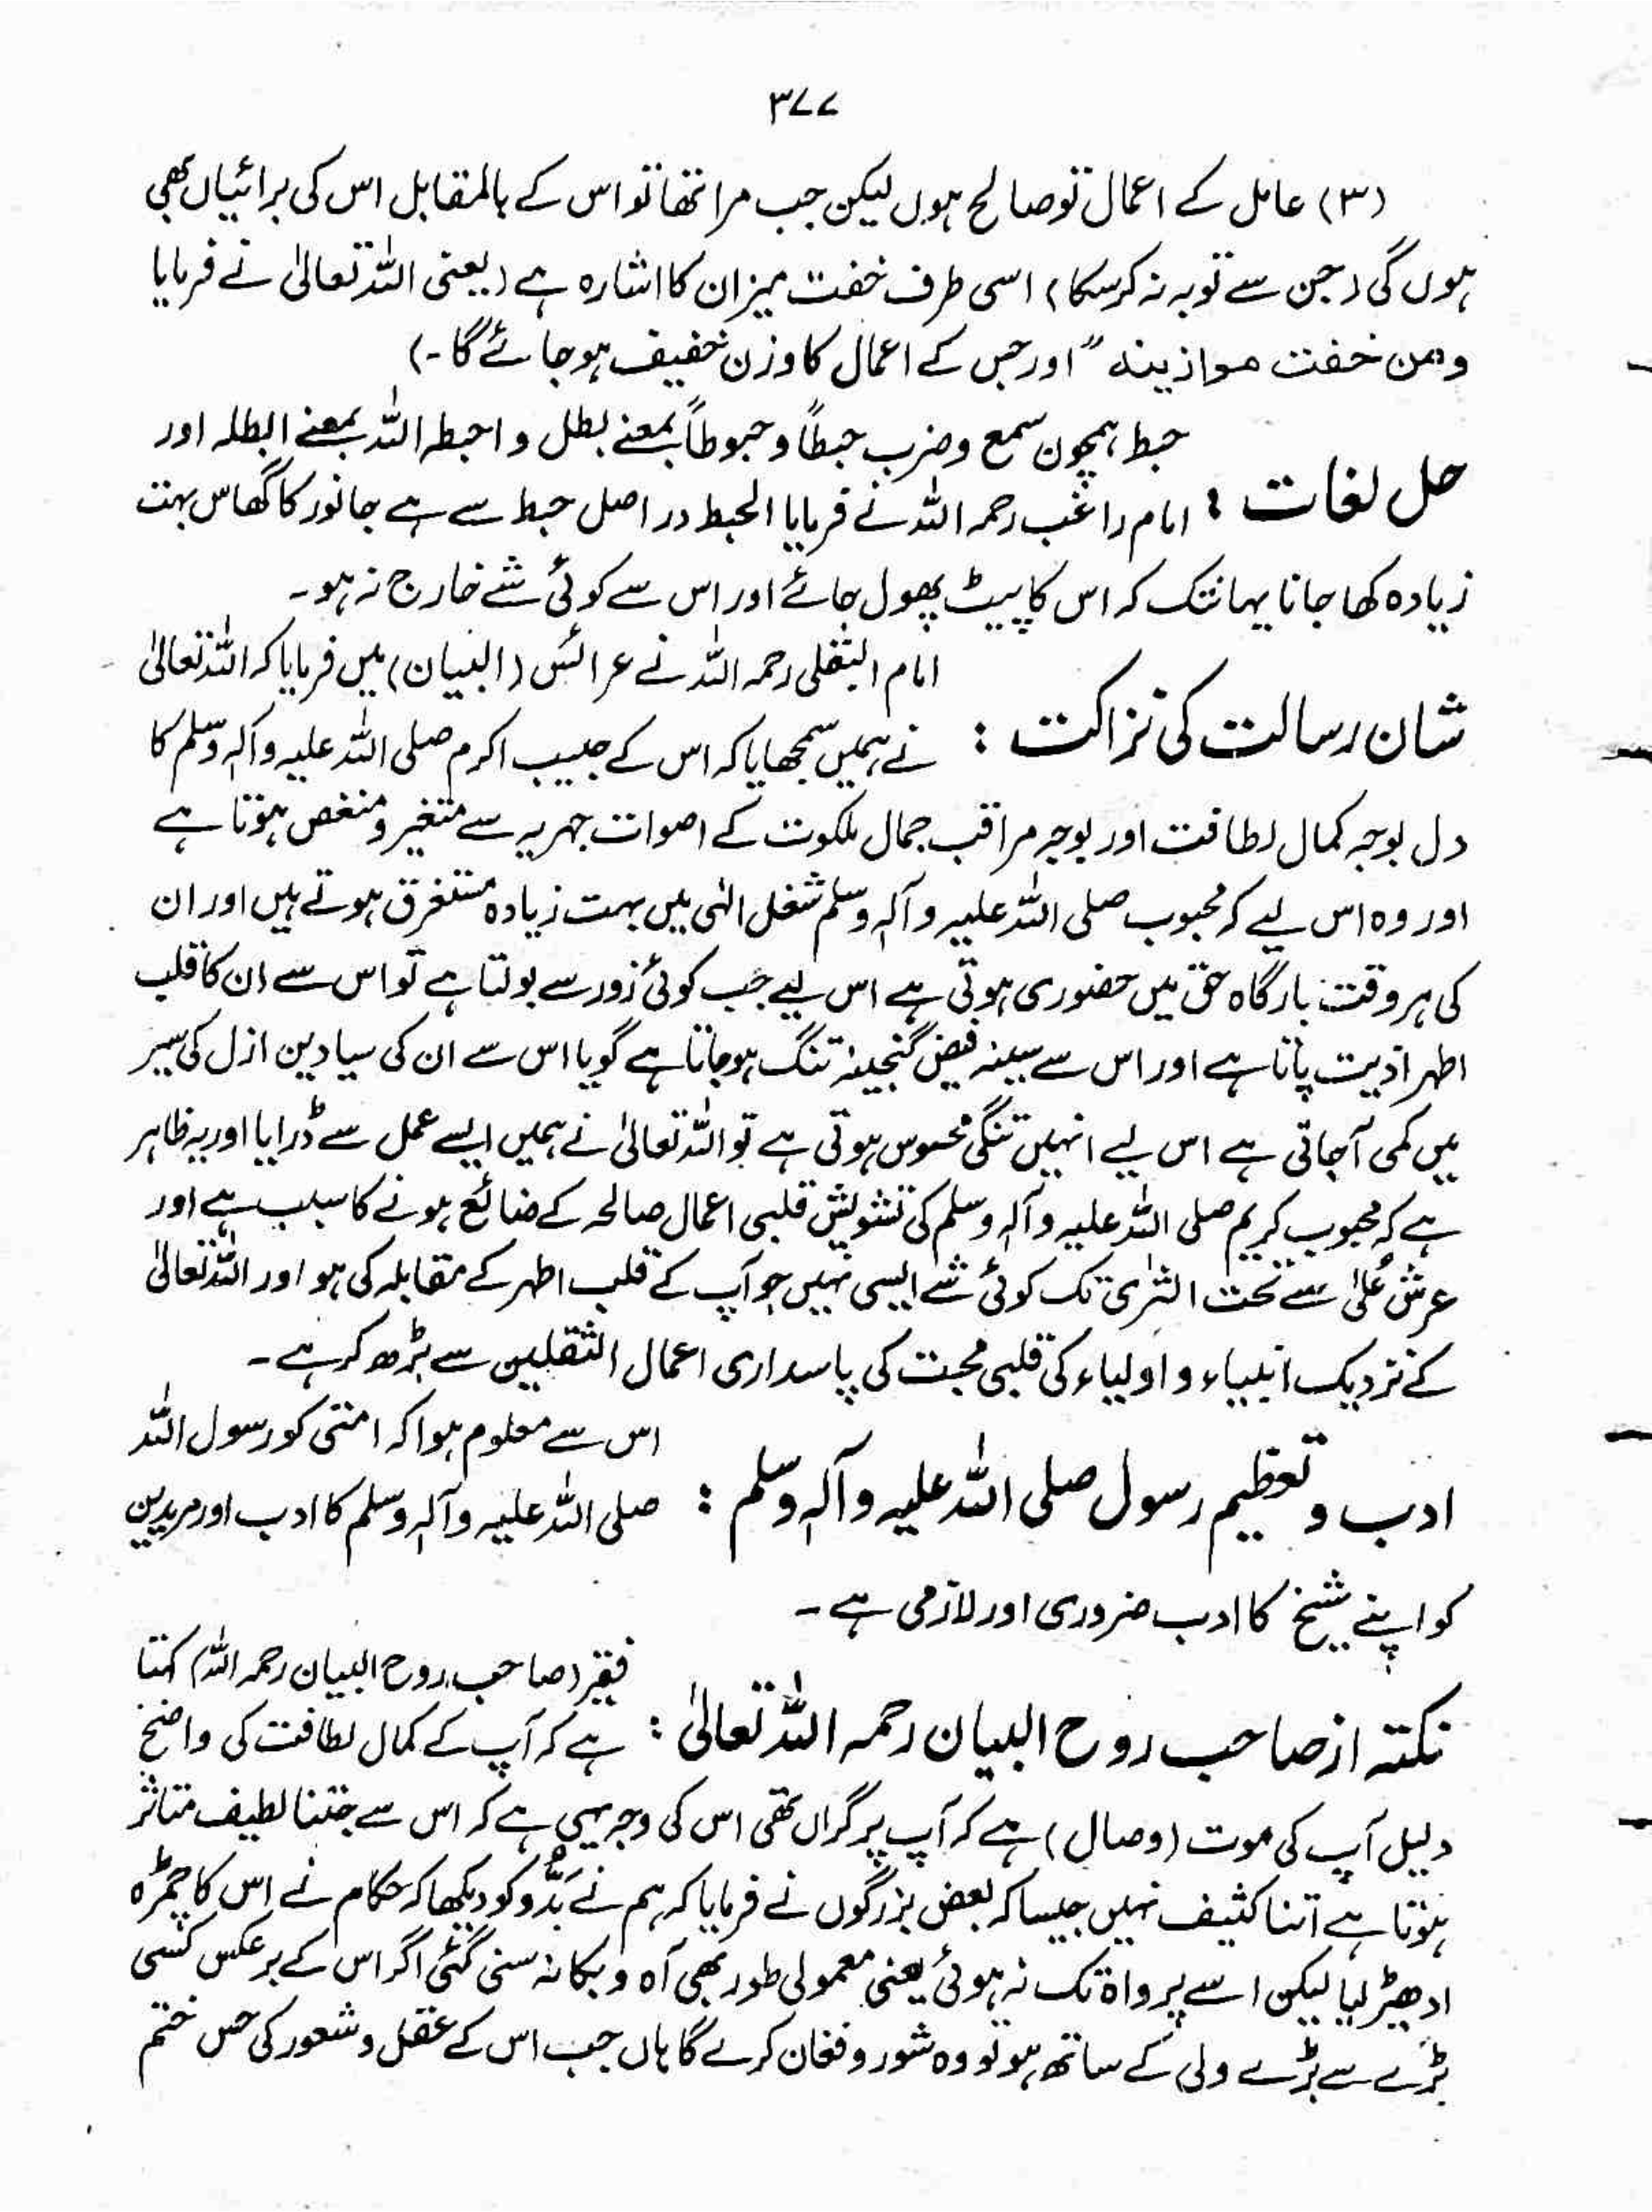 ۳۷۷
(۳) عامل کے اعمال تو صالح ہوں لیکن جب مرا تھا تو اس کے بالمقابل اس کی برائیاں بھی
ہوں گی (جن سے توبہ نہ کر سکا) اسی طرف خفت میزان کا اشارہ ہے (یعنی اللہ تعالیٰ نے فرمایا
ومن خفت موازینہ " اور جس کے اعمال کا وزن خفیف ہو جائے گا۔)
حبط ہمچون سمع و ضرب حبطاً و حبوطاً بمعنے بطل و احبطہ اللہ بمعنے ابطلہ اور
حل لغات : امام راغب رحمہ اللہ نے فرمایا الحبط در اصل حبط سے ہے جانور کا گھاس بہت
زیادہ کھا جانا یہانتک کہ اس کا پیٹ پھول جائے اور اس سے کوئی شے خارج نہ ہو۔
امام البقلی رحمہ اللہ نے عرائس (البیان) میں فرمایا کہ اللہ تعالیٰ
شان رسالت کی نزاکت : نے ہمیں سمجھایا کہ اس کے حبیب اکرم صلی اللہ علیہ وآلہ وسلم کا
دل بوجہ کمال لطافت اور بوجہ مراقب جمال ملکوت کے اصوات جہریہ سے متغیر و منغص ہوتا ہے
اور وہ اس لیے کہ محبوب صلی اللہ علیہ وآلہ وسلم شغل الٰہی میں بہت زیادہ مستغرق ہوتے ہیں اور ان
کی ہر وقت بارگاہ حق میں حضوری ہوتی ہے اس لیے جب کوئی زور سے بولتا ہے تو اس سے ان کا قلب
اطہر اذیت پاتا ہے اور اس سے سینہ فیض گنجینہ تنگ ہو جاتا ہے گویا اس سے ان کی سیادین ازل کی سیر
میں کمی آجاتی ہے اس لیے انہیں تنگی محسوس ہوتی ہے تو اللہ تعالیٰ نے ہمیں ایسے عمل سے ڈرایا اور یہ ظاہر
ہے کہ محبوب کریم صلی اللہ علیہ وآلہ وسلم کی تشویش قلبی اعمال صالحہ کے ضائع ہونے کا سبب ہے اور
عرش عُلیٰ سے تحت الثریٰ تک کوئی شے ایسی نہیں جو آپ کے قلب اطہر کے مقابلہ کی ہو اور اللہ تعالیٰ
کے نزدیک انبیاء و اولیاء کی قلبی محبت کی پاسداری اعمال الثقلین سے بڑھ کر ہے۔
اس سے معلوم ہوا کہ امتی کو رسول اللہ
ادب و تعظیم رسول صلی اللہ علیہ وآلہ وسلم : صلی اللہ علیہ وآلہ وسلم کا ادب اور مریدین
کو اپنے شیخ کا ادب ضروری اور لازمی ہے۔
فقیر (صاحب روح البیان رحمہ اللہ) کہتا
نکتہ از صاحب روح البیان رحمہ اللہ تعالیٰ : ہے کہ آپ کے کمال لطافت کی واضح
دلیل آپ کی موت (وصال) ہے کہ آپ پر گراں تھی اس کی وجہ یہی ہے کہ اس سے جتنا لطیف متاثر
ہوتا ہے اتنا کثیف نہیں جیسا کہ بعض بزرگوں نے فرمایا کہ ہم نے بَدُّو کو دیکھا کہ حکام نے اس کا چمڑہ
ادھیڑ لیا لیکن اسے پرواہ تک نہ ہوئی یعنی معمولی طور بھی آہ و بکا نہ سنی گئی اگر اس کے برعکس کسی
بڑے سے بڑے ولی کے ساتھ ہو تو وہ شور و فغان کرے گا ہاں جب اس کے عقل و شعور کی حس ختم